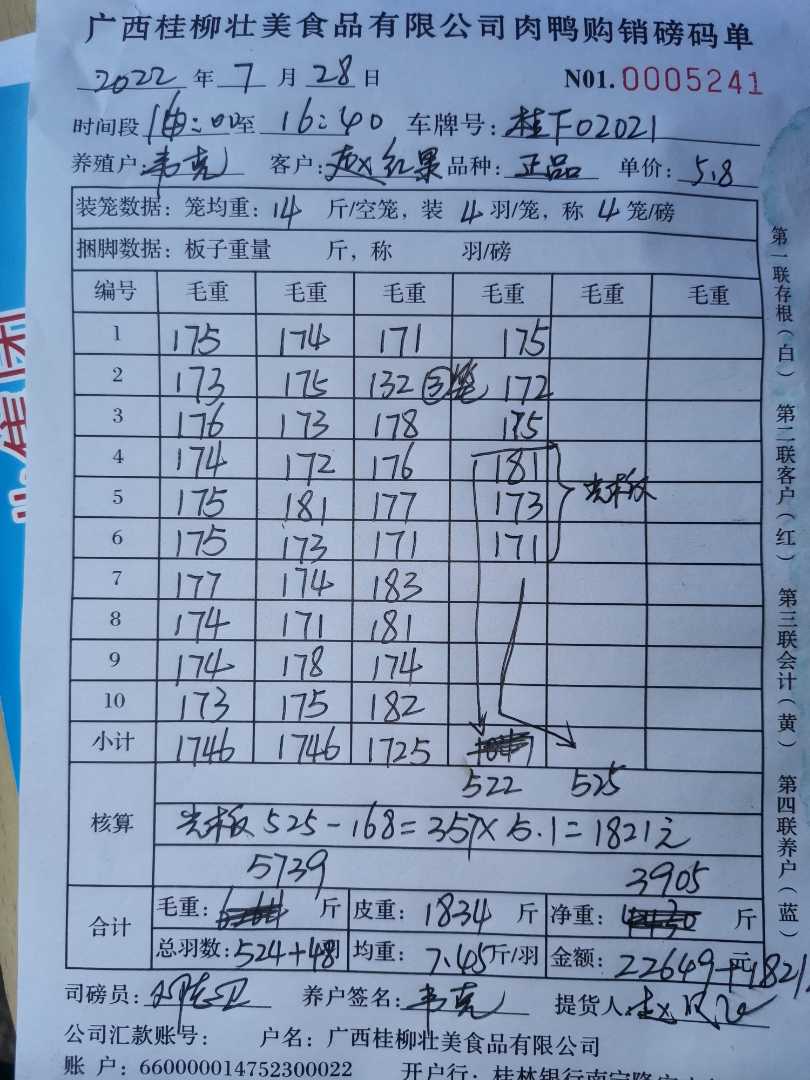 广西桂柳壮美食品有限公司肉鸭购销磅码单
2022 年 7 月 28 日 N01. 0005241
时间段 :00至 16:40 车牌号: 桂F02021
养殖户: 韦克 客户: 赵红果 品种: 正品 单价: 5.8
装笼数据: 笼均重: 14 斤/空笼, 装 4 羽/笼, 称 4 笼/磅
捆脚数据: 板子重量 斤, 称 羽/磅
编号 毛重 毛重 毛重 毛重 毛重 毛重
1 175 174 171 175
2 173 175 132 ③笼 172
3 176 173 178 175
4 174 172 176 181
5 175 181 177 173 光板
6 175 173 171 171
7 177 174 183
8 174 171 181
9 174 178 174
10 173 175 182
小计 1746 1746 1725
522 525
核算
光板 525-168=357×5.1=1821元
5739 3905
合计
毛重: 斤 皮重: 1834 斤 净重: 斤
总羽数: 524+48 均重: 7.45 斤/羽 金额: 22649+1821 元
司磅员: 养户签名: 韦克 提货人:
公司汇款账号: 户名: 广西桂柳壮美食品有限公司
账 户: 660000014752300022 开户行: 桂林银行南宁隆安
第一联存根(白) 第二联客户(红) 第三联会计(黄) 第四联养户(蓝)